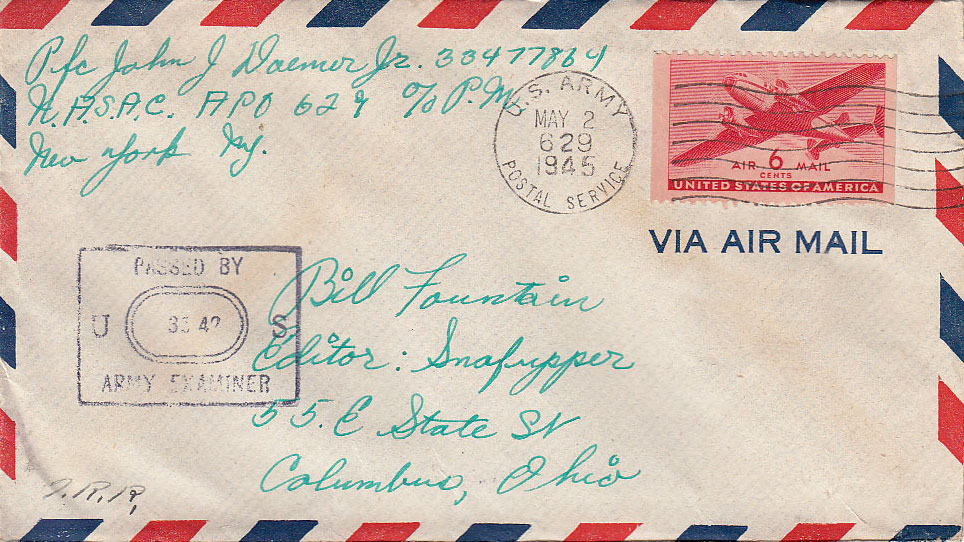 Pfc John J Daemer Jr. 33477864
N.A.S.A.C. APO 629 c/o P.M
New York NY.
U.S. ARMY
MAY 2
629
1945
POSTAL SERVICE
AIR 6 MAIL
CENTS
UNITED STATES OF AMERICA
VIA AIR MAIL
PASSED BY
U S
ARMY EXAMINER
Bill Fountain
Editor: Snafupper
55. E State St
Columbus, Ohio